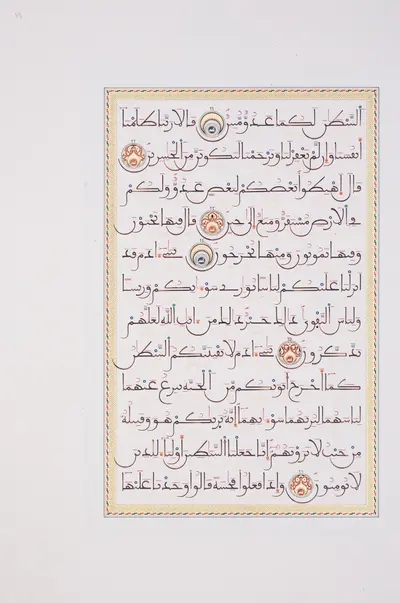 الشيطن لكما عدو مبين قالا ربنا ظلمنا
أنفسنا وإن لم تغفر لنا وترحمنا لنكونن من الخسرين
قال اهبطوا بعضكم لبعض عدو ولكم
في الارض مستقر ومتع إلى حين قال فيها تحيون
وفيها تموتون ومنها تخرجون يبني ءادم قد
أنزلنا عليكم لباسا يوري سوءتكم وريشا
ولباس التقوى ذلك خير ذلك من ءايت الله لعلهم
يذكرون يبني ءادم لا يفتننكم الشيطن
كما أخرج أبويكم من الجنة ينزع عنهما
لباسهما ليريهما سوءتهما إنه يريكم هو وقبيله
من حيث لا ترونهم إنا جعلنا الشيطين أولياء للذين
لا يومنون وإذا فعلوا فحشة قالوا وجدنا عليها